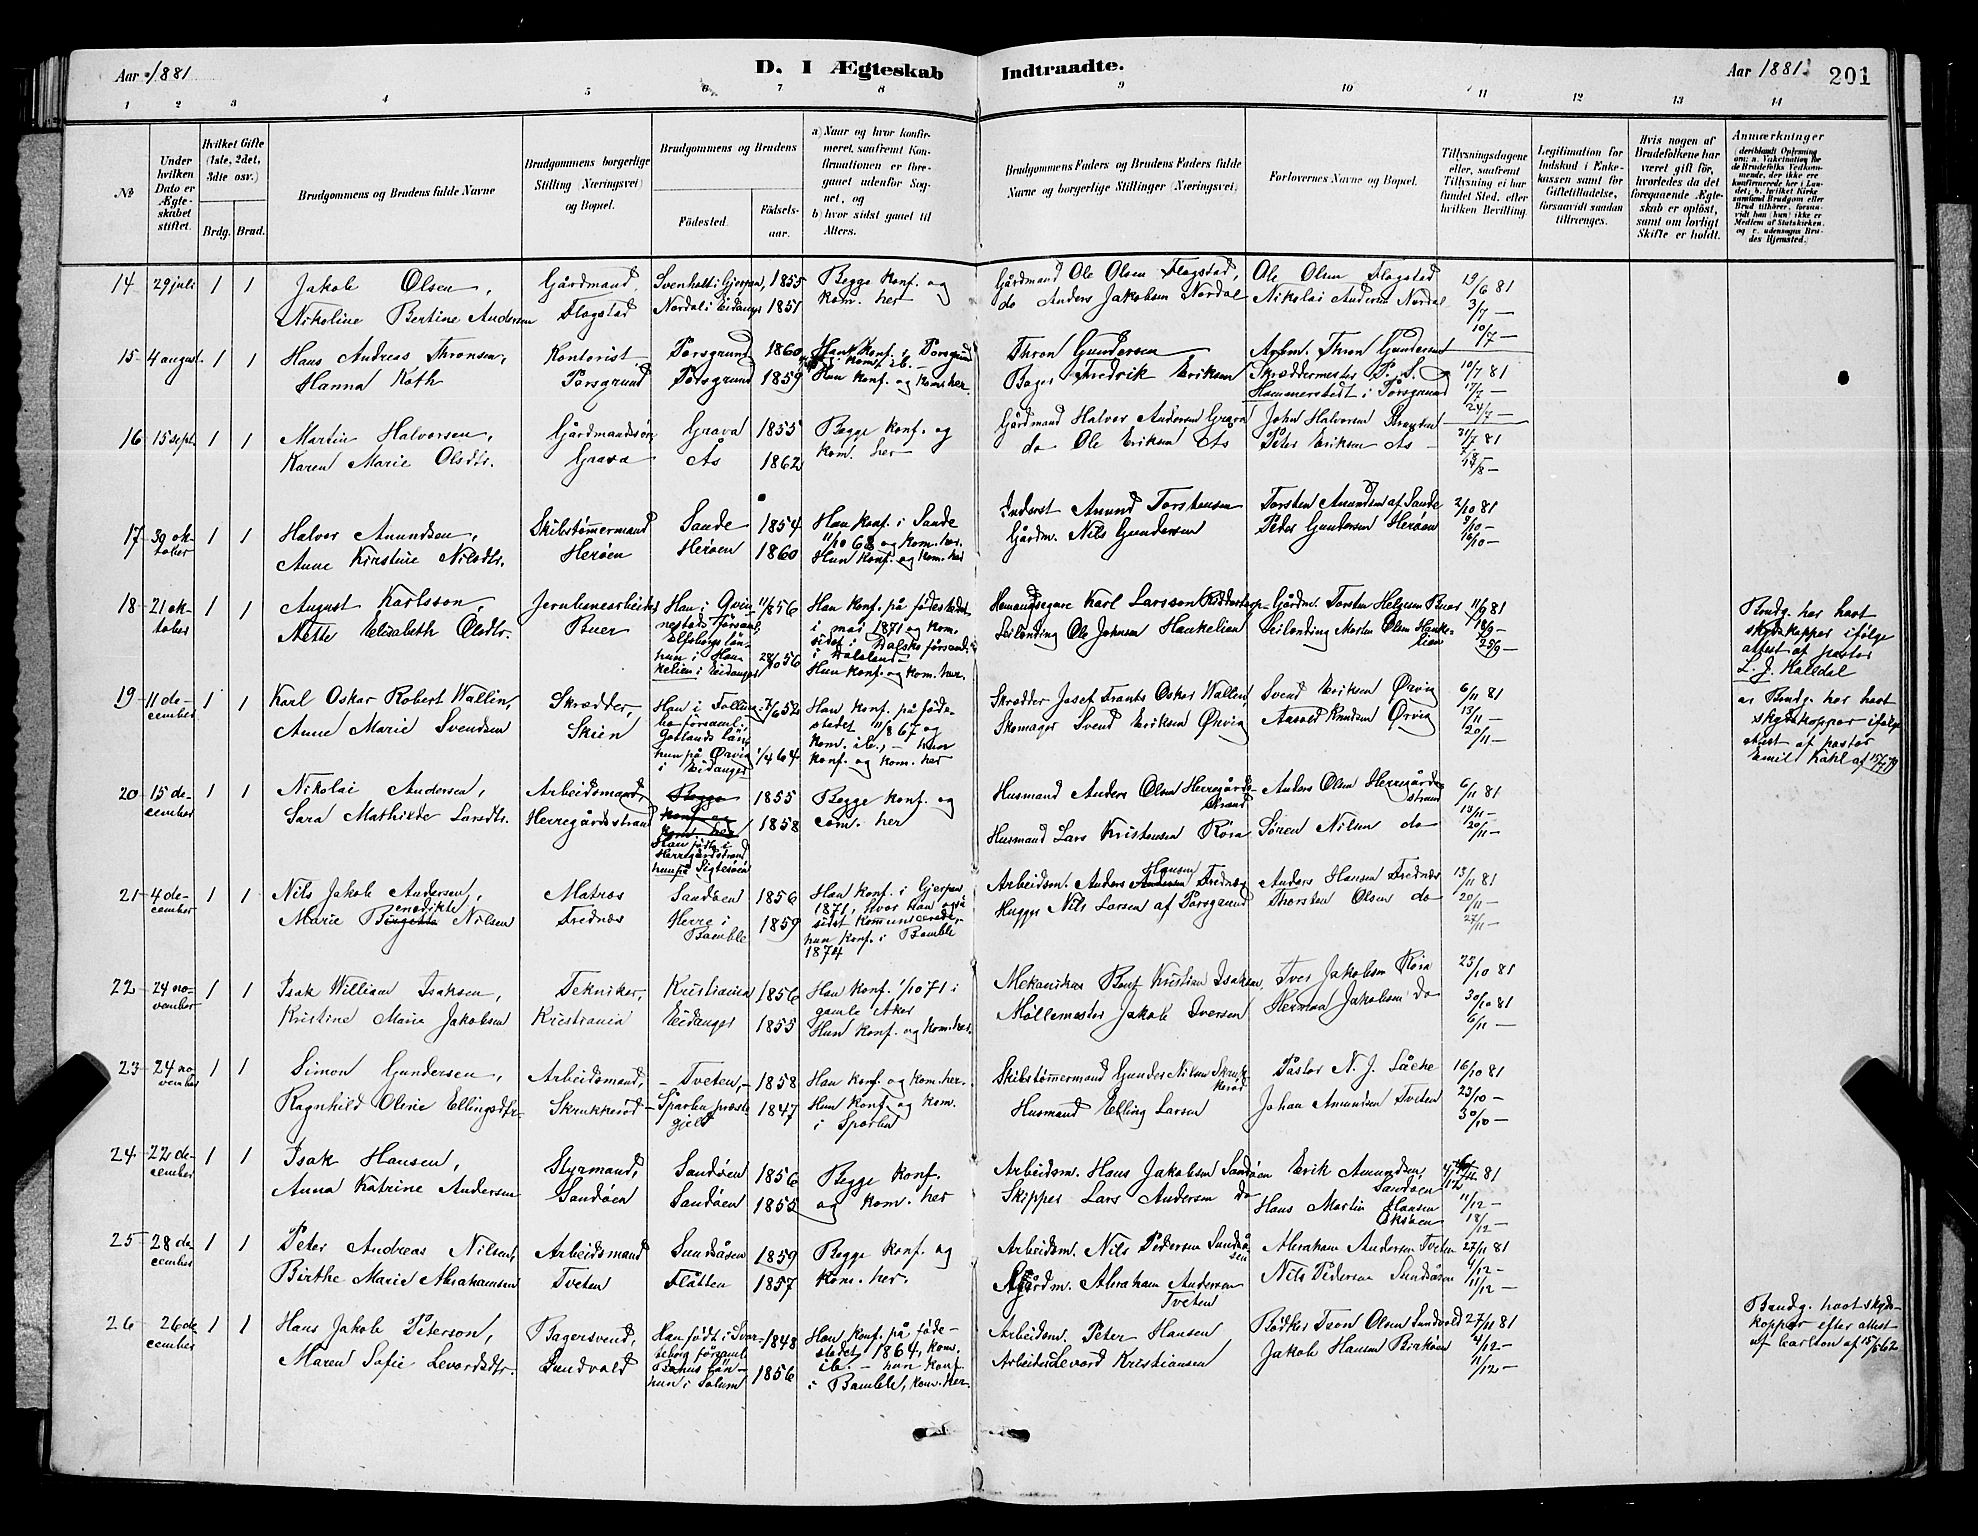 Aar 1881
D. I Ægteskab Indtraadte.
Aar 1881.
201
1 2 3 4 5 6 7 8 9 10 11 12 13 14
No
Under hvilken Dato er Ægteskabet stiftet.
Hvilket Gifte (1ste, 2det, 3dte osv.)
Brdg. Brud.
Brudgommens og Brudens fulde Navne
Brudgommens borgerlige Stilling (Næringsvei) og Bopæl.
Brudgommens og Brudens
Fødested. Fødselsaar.
a) Naar og hvor konfirmeret, saafremt Konfirmationen er foregaaet udenfor Sognet, og
b) hvor sidst gaaet til Alters.
Brudgommens Faders og Brudens Faders fulde Navne og borgerlige Stillinger (Næringsvei)
Forlovernes Navne og Bopæl.
Tillysningsdagene eller, saafremt Tillysning ei har fundet Sted, efter hvilken Bevilling.
Legitimation for Indskud i Enkekassen samt for Giftetilladelse, forsaavidt saadan tiltrænges.
Hvis nogen af Brudefolkene har været gift før, hvorledes da det foregaaende Ægteskab er opløst, samt om lovligt Skifte er holdt.
Anmærkninger
(deriblandt Oplysning om: a. Vakcination for de Brudefolks Vedkommende, der ikke ere konfirmerede her i Landet; b. hvilket Kirkesamfund Brudgom eller Brud tilhører, forsaavidt han (hun) ikke er Medlem af Statskirken, og c. udensogns Brudes Hjemsted.)
14 29 juli 1 1 Jakob Olsen, Gårdmand, Svenholt i Gjerpen, 1855 Begge konf. og Gårdmand Ole Olsen Flogstad, Ole Olsen Flogstad 19/6 81
Nikoline Bertine Andersen Flogstad Nordal i Eidanger 1851 kom. her do Anders Jakobsen Nordal Nikolai Andersen Nordal 3/7 —
10/7 —
15 4 august 1 1 Hans Andreas Thronsen, Kontorist Porsgrund 1860 Han konf. i Porsgrund Thron Gundersen Arbm. Thron Gundersen
Hanna Koth Porsgrund Porsgrund 1859 Hun konf. og kom. her Bager Fredrik Eriksen Skræddermester P. S. 10/7 81
Hammerstedt i Porsgrund 17/7 —
24/7 —
16 15 sept. 1 1 Martin Halvorsen, Gårdmandsøn Grava 1855 Begge konf. og Gårdmand Halvor Andersen Grava John Halvorsen
Karen Marie Olsdtr. Grava Ås 1862 kom. her do Ole Eriksen Ås Peter Eriksen Ås 31/7 81
14/8 —
17 39 oktober 1 1 Halvor Amundsen, Skibstømmermand Sande 1854 Han konf. i Sande Inderst Amund Torstensen Torsten Amundsen af Sande 2/10 81
11/10 68 og kom. her.
Anne Kirstine Nilsdtr. Herøen Herøen 1860 Hun konf. og kom. her Gårdm. Nils Gundersen Peder Gundersen Herøen 9/10 —
16/10 —
18 21 oktober 1 1 August Karlsson, Jernbanearbeider Han i Qvinnestads församl. Elfsborgs län 11/8 56 Han konf. på fødestedet i mai 1871 og kom. sidst i Dalsko församl. i Dalsland Hemangsegare Karl Larsson Riddertorp Gårdm. Torsten Helgesen Buer 11/9 81
Nette Elisabeth Olsdtr. Buer hun i Haukelien i Eidanger 28/10 56 Hun konf. og kom. her. Leilending Ole Johnsen Haukelien Leilending Morten Olsen Haukelien 18/9 —
25/9 —
Brudg. har havt skydskopper ifølge attest af pastor L. J. Halldal
19 11 december 1 1 Karl Oskar Robert Wallin, Skrædder, Han i Follingbo församl. Gotlands län 7/6 52 Han konf. på fødestedet 11/8 67 og kom. ib., — hun Skrædder Josef Frants Oskar Wallen Svend Eriksen Ørvig 6/11 81
Anne Marie Svendsen Skien hun på Ørvig i Eidanger 1/4 64 konf. og kom. her Skomager Svend Eriksen Ørvig Aasold Knudsen Ørvig 13/11 —
20/11 —
Brudg. har havt skydskopper ifølge attest af pastor Emil Kahl af 17/7 79
20 15 december 1 1 Nikolai Andersen, Arbeidsmand, Begge konf. og kom. her 1855 Begge konf. og Husmand Anders Olsen Herregårdsstrand Anders Olsen Herregårdsstrand 6/11 81
Sara Mathilde Larsdtr. Herregårdsstrand Han født i Herregårdsstrand hun på Sigtesøen 1858 com. her Husmand Lars Kristensen Røra Søren Nilsen do 13/11 —
20/11 —
21 4 december 1 1 Nils Jakob Andersen, Matros Sandøen 1856 Han konf. i Gjerpen 1871, hvor han også sidst kommunicerede, Arbeidsm. Anders Andersen Hansen Frednæs Anders Hansen Frednæs 13/11 81
Marie Birgitte enedikte Nilsen Frednæs Herre i Bamble 1859 hun konf. i Bamble 1874 Hugger Nils Larsen af Porsgrund Thorsten Olsen do 20/11 —
27/11 —
22 24 november 1 1 Isak William Isaksen, Tekniker, Kristiania 1856 Han konf. 1/10 71 i gamle Aker Mekanikus Bent Kristian Isaksen, Iver Jakobsen Røra 23/10 81
Kristine Marie Jakobsen Kristiania Eidanger 1855 Hun konf. og kom. her. Møllemester Jakob Iversen Herman Jakobsen do 30/10 81
6/11 —
23 24 november 1 1 Simon Gundersen, Arbeidsmand, — Tveten, — 1858 Han konf. og kom. her. Skibstømmermand Gunder Nilsen Skrukkerød Pastor N. J. Låche 16/10 81
Ragnhild Oline Ellingsdtr. Skrukkerød — Sparbu præstegjeld 1847 Hun konf. og kom. i Sparbu Husmand Elling Larsen Johan Amundsen Tveten 23/10 —
30/10 —
24 22 december 1 1 Isak Hansen, Styrmand, Sandøen 1856 Begge konf. Arbeidsm. Hans Jakobsen Sandøen Erik Amundsen, Sandøen 4/12 81
Anna Katrine Andersen Sandøen Sandøen 1855 og kom. her Skipper Lars Andersen do Hans Martin Hansen Oksøen 11/12 —
18/12 —
25 28 december 1 1 Peter Andreas Nilsen, Arbeidsmand Sundåsen 1859 Begge konf. og Arbeidsm. Nils Pedersen Sundåsen Abraham Andersen Tveten 27/11 81
Birthe Marie Abrahamsen Tveten Flåtten 1857 kom. her. Gårdm. Abraham Andersen Tveten Nils Pedersen Sundåsen 4/12 —
11/12 —
26 26 december 1 1 Hans Jakob Peterson, Bagersvend, Han født i Svarteborg församl. Bahus län — 1848 Han konf. på fødestedet 1864, kom. ib. — hun konf. Arbeidsm. Peter Hansen Bødker Tron Olsen Sundvold 27/11 81
Maren Sofie Levordsdtr. Sundvold hun i Solum 1856 i Bamble, kom. her. Arbeidsm. Levord Kristiansen Jakob Hansen Birkøen 4/12 —
11/12 —
Brudg. havt skydskopper efter attest af Carlson af 15/5 62